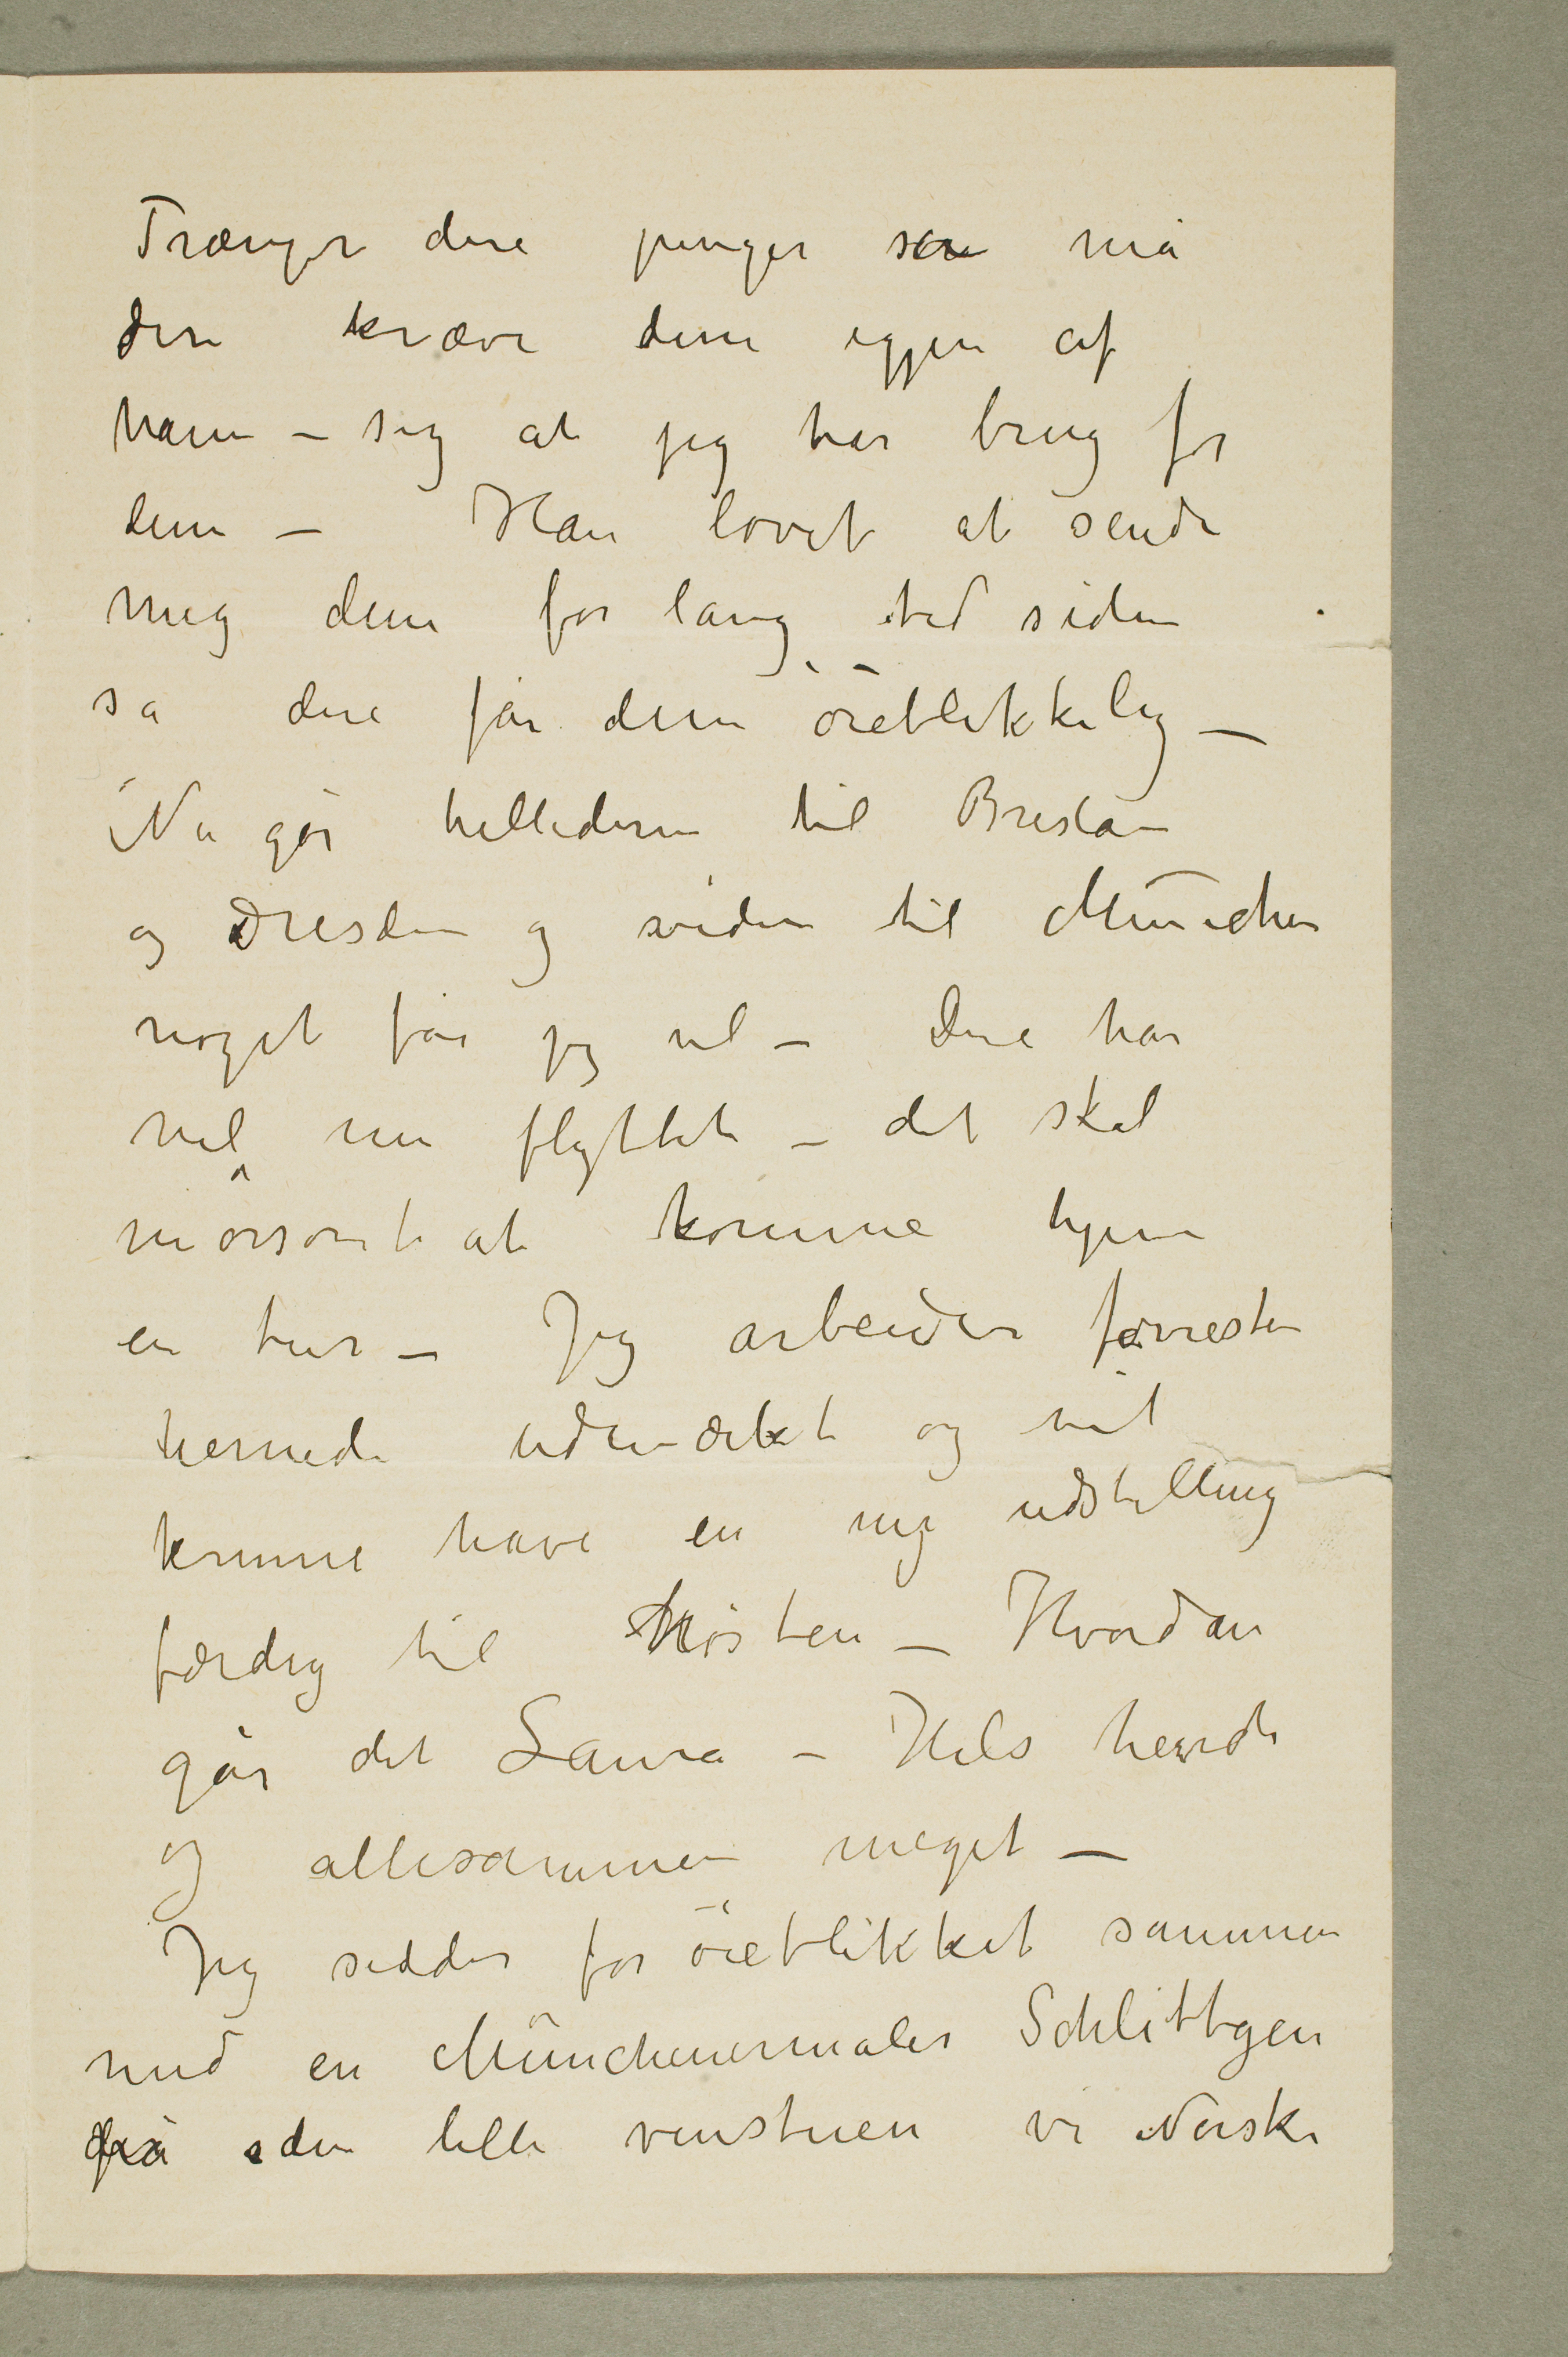 Trænger dere penger så må
dere kræve dem igjen af
ham – sig at jeg har brug for
dem – Han lovet at sende
mig dem for lang tid siden
så dere får dem öieblikkelig –
Nu går billederne til Breslau
og Dresden og siden til München
noget får jeg vel – Dere har
vel nu flyttet – det skal
morsomt at komme hjem
en tur – Jeg arbeider forresten
hernede udmærket og vil
kunne have en ny udstilling
færdig til Hösten – Hvordan
går det Laura – Hils hende
og allesammen meget –
Jeg sidder for öieblikket sammen
med en Münchenermaler Schlittgen
på den lille vinstuen vi Norske